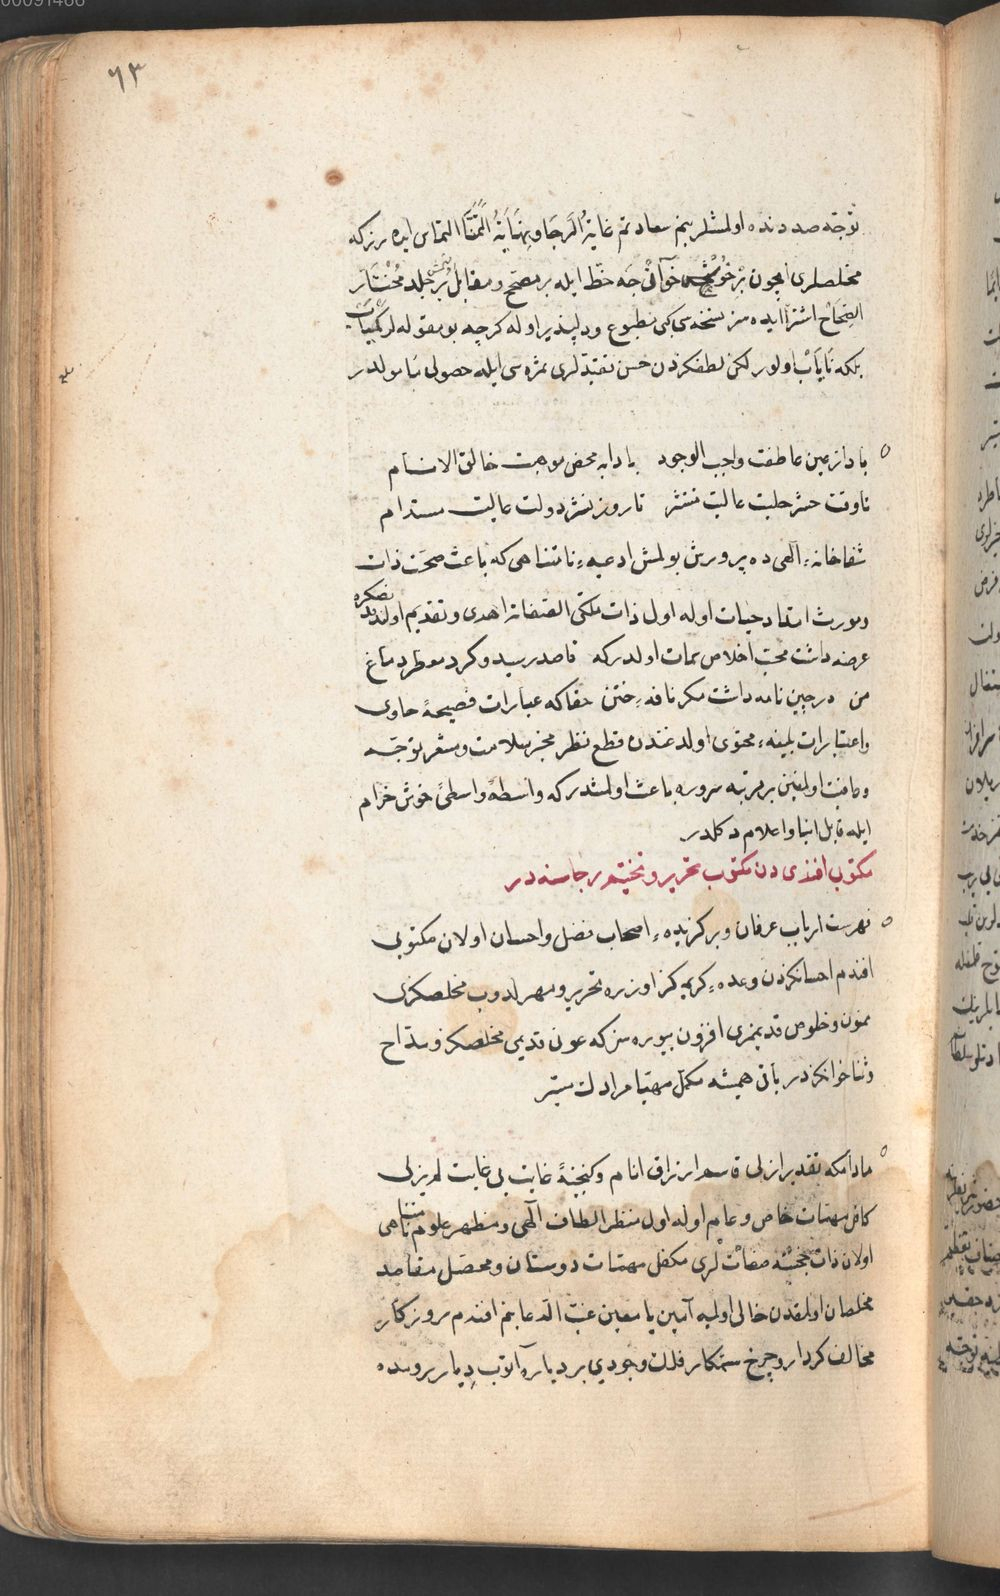 ٦٣
توجّه صددنده اولمشلر بنم سعادتم غايةُ الرَجا ونِهَايَةُ المُتَمَنَّا التماس ايده رز كه
مخلصلرى ايچون بر خوش خوآنى جَه خظ ايله بر مصحّح ومقابل بر جلد مُختَار
الصِحَاحْ اشترا ايده سز نسخه سى كبى مطبوع ودلپذير اوله كرچه بو مقوله لر كمياب
بلكه نَايَابْ اولور لكن لطفكزدن حسن تقيدلرى ثمره سى ايله حصولى مأمولدر
بادا ز عين عاطفت واجب الوجود بادا به محض موهبت خالق الانام
تا وقت حشر جلبت عاليت منتشر تا روز نشر دولت عاليت مستدام
شفاخانهٔ الهى ده پرورش بولمش ادعيهٔ نامتناهى كه باعث صحّت ذات
ومورث امتداد حيات اوله اول ذات ملكى الصفاته اهدى وتقديم اولندقدنصكره
عرضه داشت محبّ اخلاص سمات اولدركه قاصد رسيد وكرد معطر دماغ
من در جيين نامه داشت مكر نافهٔ ختن حقاكه عبارات فصيحهٔ حاوى
واعتبارات بليغهٔ محتوى اولدغندن قطع نظر مخبر سلامت ومشعر توجّه
وعافيت اولمغين بر مرتبه سروره باعث اولمشدركه واسطهٔ واسطىٔ خوش خرام
ايله قابل انبا واعلام دكلدر
مكتوبى افندى دن مكتوب تحرير وتختيم رجاسنه در
فهرست ارباب عرفان وبركزيدهٔ اصحاب فضل واحسان اولان مكتوبى
افندم احسانكزدن وعدهٔ كريمه كز اوزره تحرير ومهرلدوب مخلصكزى
ممنون وخلوص قديممزى افزون بيوره سز كه عون قديمى مخلصكز ومداح
وثناخوانكزدر باقى هميشه مكمّل مهيّا مرادات ميسّر
مادامكه تقدير ازلى قاسم ارزاق انام وكنجنهٔ غايت بى غايت لم يزلى
كافل مهمّات خاص وعام اوله اول منظر الطاف الهى ومظهر علوم نامتناهى
اولان ذات خجسته صفات لرى مكفل مهمّات دوستان ومحصّل مقاصد
مخلصان اولمقدن خالى اولميه آمين يا معين غبّ الدعا بنم افندم روزكار
مخالف كردار وچرخ ستمكار فلك وجودي بر دياره آتوب دِيار بروسه ده